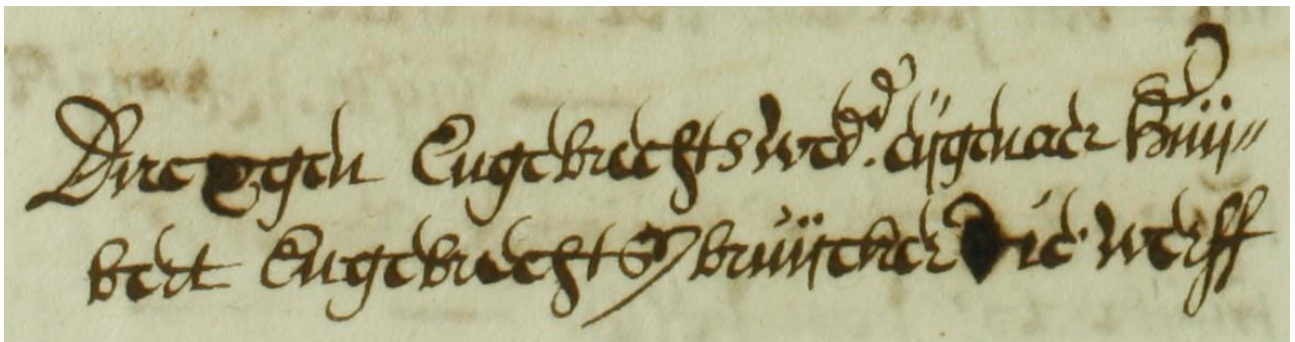 Dirckgen Engebrechts wed.e eijgenaer Huij-
bert Engebrechts bruijcker die werff